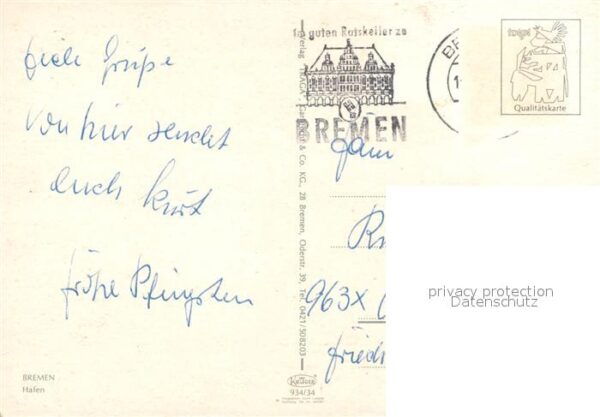 Viele Grüße
von hier sendet
euch Kurt
frohe Pfingsten
BREMEN
Hafen
Im guten Ratskeller zu
BREMEN
& Co. KG., 28 Bremen, Oderstr. 39, Tel. 0421/508203
Krüger
934/34
Qualitätskarte
963X
privacy protection
Datenschutz